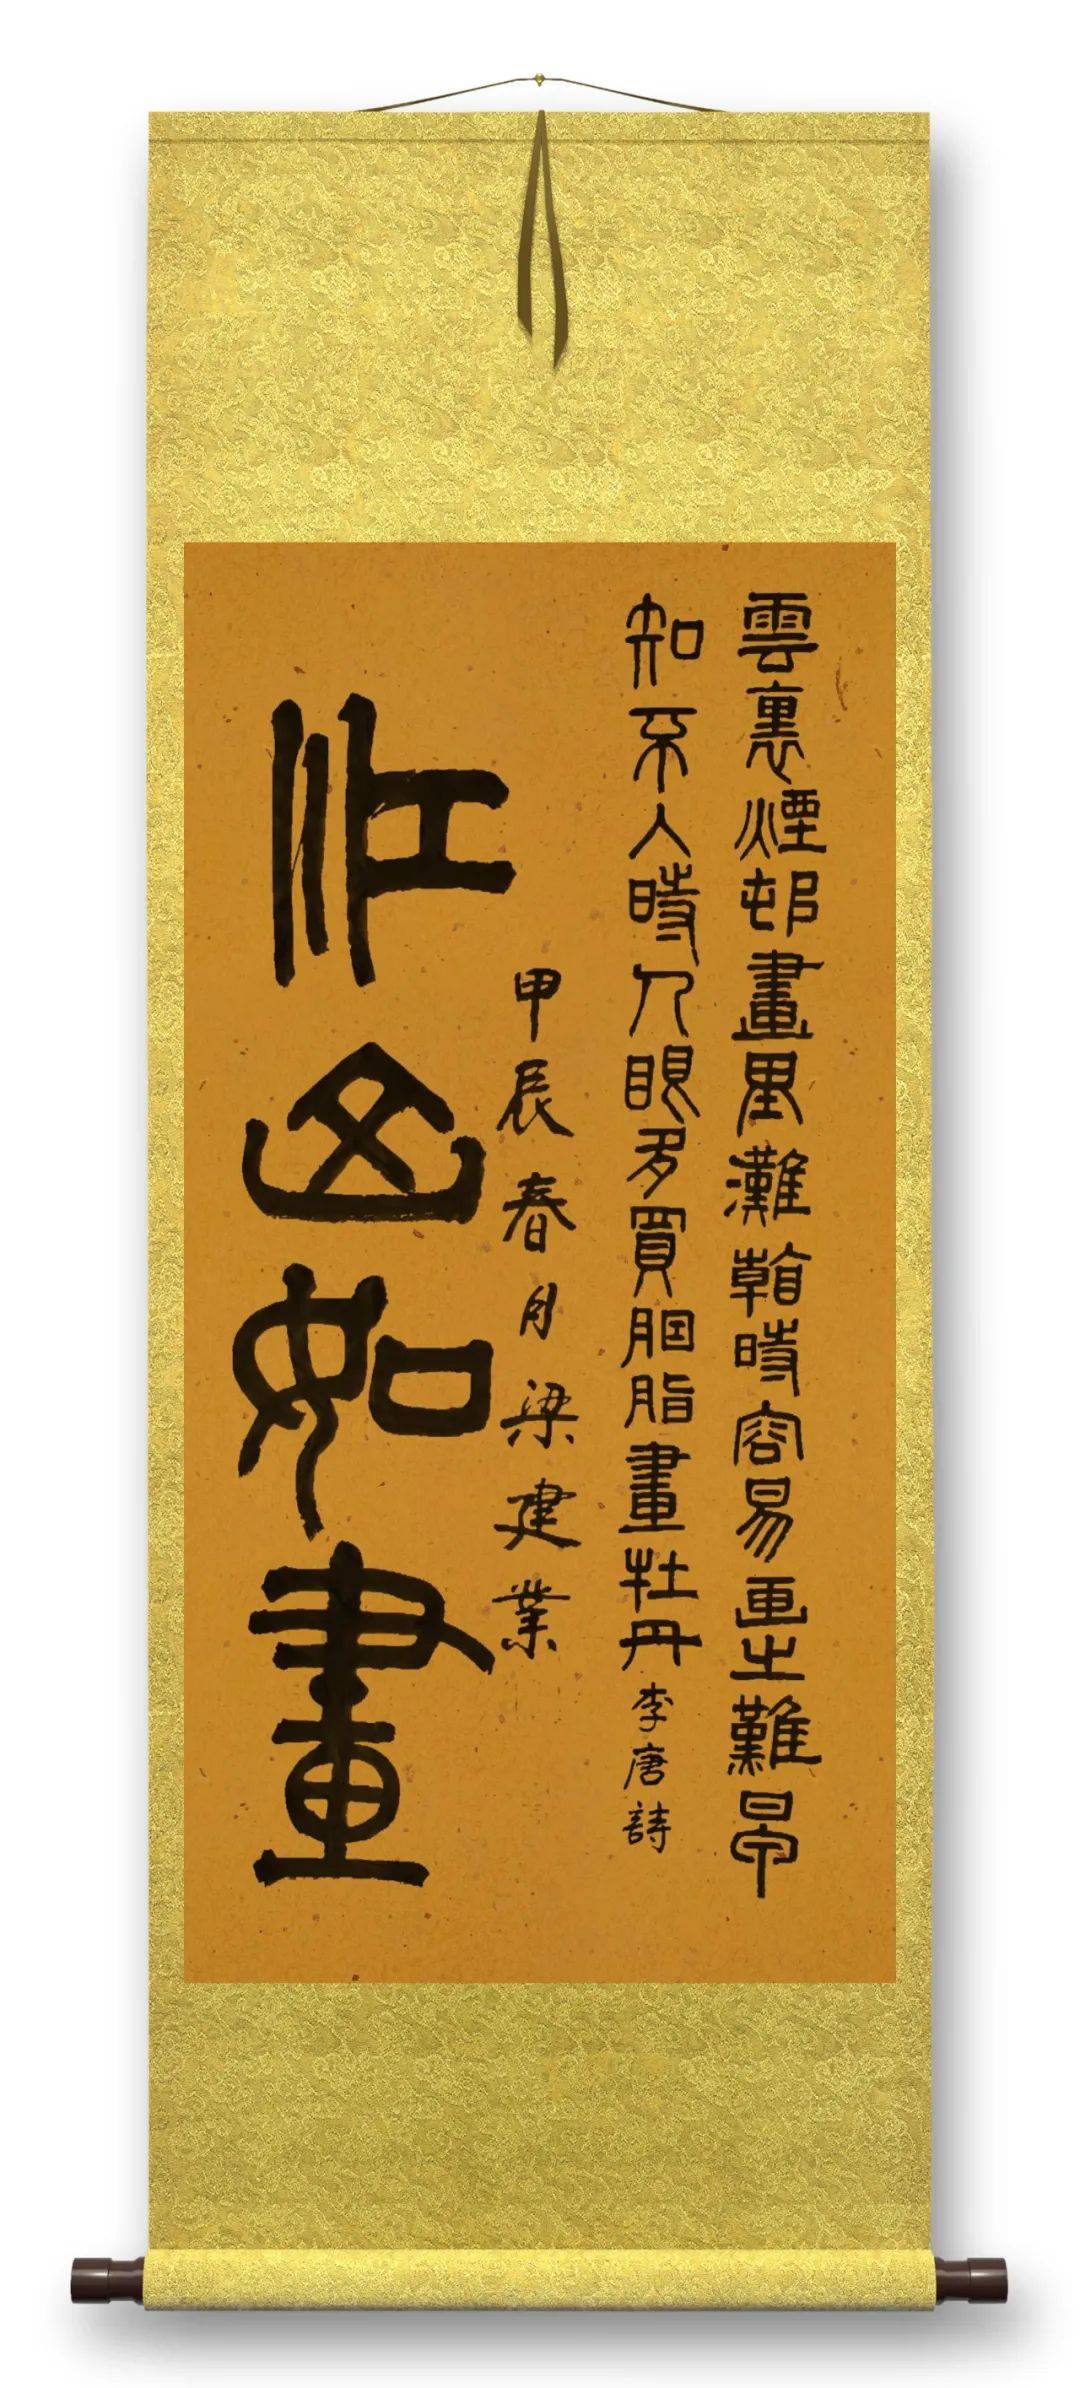 雲裏煙邨畫里灘看時容易画之難早
知不入時人眼多買胭脂畫牡丹李唐詩
甲辰春月梁建業
江山如畫